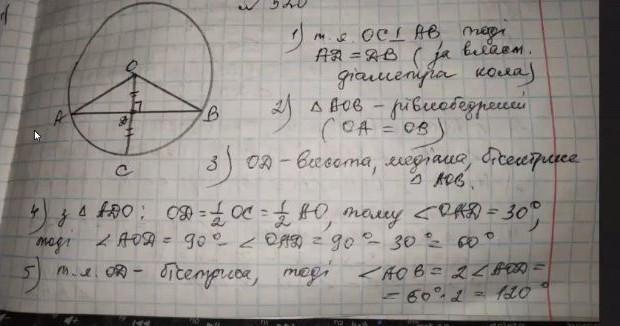 № 520
1) т.я. OC⊥AB тоді
AD = DB (за власт.
діаметра кола)
O
A
D
B
C
2) △ AOB – рівнобедрений
(OA = OB)
3) OD – висота, медіана, бісектриса
△ AOB.
4) з △ ADO: OD = 1/2 OC = 1/2 AO, тому ∠OAD = 30°,
тоді ∠AOD = 90° – ∠OAD = 90° – 30° = 60°
5) т.я. OD – бісектриса, тоді ∠AOB = 2∠AOD =
= 60°·2 = 120°